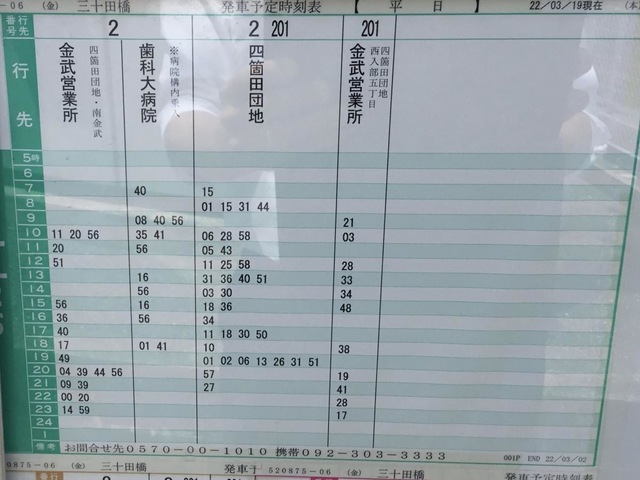 -06 (金) 三十田橋 発車予定時刻表 【 平 日 】 22/03/19現在
番号 行先 2 2 201 201
行先
金武営業所
四箇田団地・南金武
歯科大病院
四箇田団地
金武営業所
四箇田団地
西入部五丁目
5時
6
7 40 15
8 01 15 31 44
9 08 40 56 21
10 11 20 56 35 41 06 28 58 03
11 20 56 05 43
12 51 11 25 58 28
13 16 31 36 40 51 33
14 56 03 30 34
15 56 16 18 36 48
16 36 56 34
17 40 11 18 30 50
18 17 01 41 10 38
19 49 01 02 06 13 26 31 51
20 04 39 44 56 57 19
21 09 39 27 41
22 00 20 28
23 14 59 17
24
1
備考 お問合せ先0570-00-1010 携帯092-303-3333 001P END 22/03/02
0875-06 (金) 三十田橋 発車予 520875-06 (金) 三十田橋 発車予定時刻表